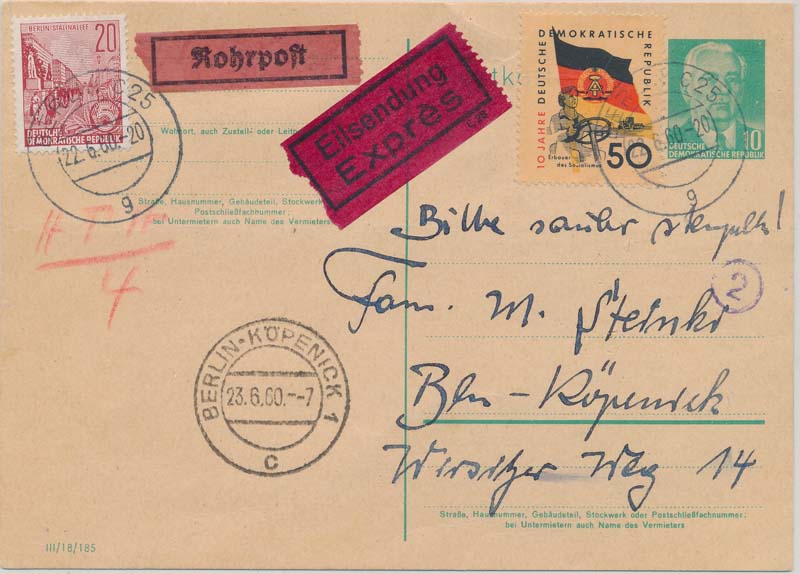 BERLIN-STALINALLEE
20
DEUTSCHE
DEMOKRATISCHE REPUBLIK
Rohrpost
Eilsendung
Exprès
C 28
10 JAHRE DEUTSCHE DEMOKRATISCHE REPUBLIK
Erbauer
des Sozialismus
50
10
DEUTSCHE
DEMOKRATISCHE REPUBLIK
C 25
22.6.60.-20
g
C 25
22.6.60.-20
g
Wohnort, auch Zustell- oder
Straße, Hausnummer, Gebäudeteil, Stockwerk
Postschließfachnummer;
bei Untermietern auch Name des Vermieters
4
Bitte sauber stempeln!
2
Fam. M. Steinki
Bln-Köpenick
Wirsitzer Weg 14
BERLIN-KÖPENICK 1
23.6.60.--7
c
Straße, Hausnummer, Gebäudeteil, Stockwerk oder Postschließfachnummer;
bei Untermietern auch Name des Vermieters
III/18/185